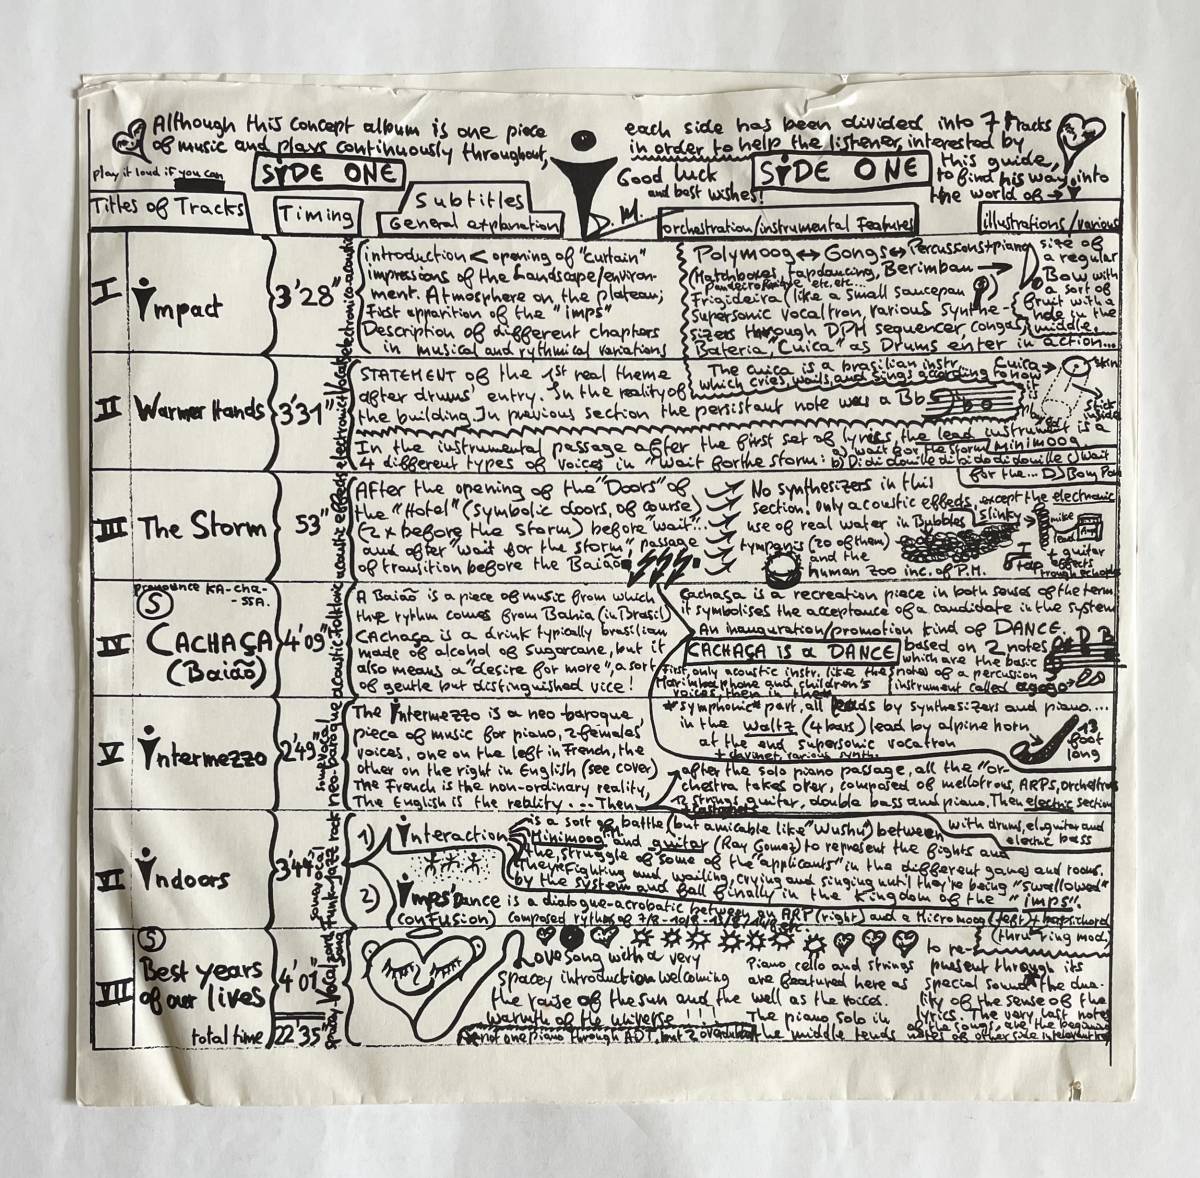 Although this concept album is one piece
of music and plays continuously throughout,
each side has been divided into 7 tracks
in order to help the listener, interested by
this guide,
to find his way into
the world of →
play it loud if you can
SiDE ONE
Good luck
and best wishes!
P. M.
SiDE ONE
Titles of Tracks
Timing
Subtitles
General explanation
orchestration/instrumental Features
illustrations/various
I
impact
3'28"
electronic acoustic
introduction < opening of "Curtain"
impressions of the Landscape/environ-
ment. Atmosphere on the plateau;
First apparition of the "imps"
Description of different chapters
in musical and rythmical variations
Polymoog ↔ Gongs ↔ Percussions + piano
Matchboxes, tapdancing, Berimbau →
pandeiro etc, etc...
Frigideira (like a small saucepan)
supersonic vocaltron, various synthe-
sizers through DPM sequencer, congas,
Bateria, "Cuica" as Drums enter in action...
size of
a regular
Bow with
a sort of
fruit with a
hole in the
middle.
II
Warmer Hands
3'31"
electronic/vocal
STATEMENT of the 1st real theme
after drums' entry. In the reality of
the building. In previous section the persistant note was a Bb
The cuica is a brasilian instr.
which cries, wails, and sings according to how
it
Cuica
skin
stick
inside
In the instrumental passage after the first set of lyrics, the lead instrument is a
MINIMOOG
4 different types of voices in "Wait for the storm: a) wait for the storm
b) Di di douille di bi do di douille c) Wait
for the... D) Bom Pom
III
The Storm
53"
acoustic effects
After the opening of the "Doors" of
the "Hotel" (symbolic doors, of course)
(2 x before the Storm) before "wait"...
and after "wait for the storm", passage
of transition before the Baião
No synthesizers in this
section. Only acoustic effects, except the electronic
use of real water in Bubbles
slinky
tympanis (20 of them)
and the
human zoo inc. of P.M.
mike
lead
Amp
tap
+ guitar
effects
trough echoplex
pronounce KA-cha-
-SSA.
S
IV
CACHAÇA
(Baião)
4'09"
acoustic folkloric
A Baião is a piece of music from which
the rythm comes from Bahia (in Brasil)
CAchaça is a drink typically brasilian
made of alcohol of sugarcane, but it
also means a "desire for more", a sort
of gentle but distinguished vice!
Cachaça is a recreation piece in both senses of the term
it symbolises the acceptance of a candidate in the system
An inauguration/promotion kind of DANCE.
CACHAÇA iS a DANCE
based on 2 notes
D B
which are the basic
notes of a percussion
instrument called agogo
First, only acoustic instr. like the
Marimbaphone and children's
voices, then in the
"symphonic" part, all leads by synthesizers and piano...
in the waltz (4 bars) lead by alpine horn
at the end supersonic vocatron
+ clavinet, various synth.
13
foot
long
V
intermezzo
2'49"
neo-baroque
The intermezzo is a neo baroque,
piece of music for piano, 2 females'
voices, one on the left in French, the
other on the right in English (see cover)
The French is the non-ordinary reality,
The English is the reality . . . Then
after the solo piano passage, all the "or-
chestra takes over, composed of mellotrons, ARPS, orchestrons
12 strings guitar, double bass and piano. Then electric section
+ castagnets
with drums, el. guitar and
electric bass
VI
indoors
3'44"
somevocal
funk-jazz rock
1) interaction
is a sort of battle (but amicable like "Wushu") between
Minimoog and guitar (Ray Gomez) to represent the fights and
the struggle of some of the "applicants" in the different games and rooms.
They're fighting and wailing, crying and singing until they're being "swallowed"
by the system and fall finally in the Kingdom of the "imps".
2) imps' Dance is a dialogue-acrobatic between an ARP (right) and a Micromoog (left) + harpsichord
(confusion) composed rythms of 7/8-10/8-13/8-14/8, etc.
(thru ring mod)
S
VII
Best years
of our lives
4'01"
spacey vocal
song
Love song with a very
spacey introduction welcoming
the raise of the sun and the
warmth of the universe !!!
Piano cello and strings
are featured here as
well as the voices.
The piano solo in
the middle tends
to re-
present through its
special sound the dua-
lity of the sense of the
lyrics. The very last notes
of the songs, are the beginning
notes of other side
not one piano through ADT, but 2 overdubs
total time
22'35"